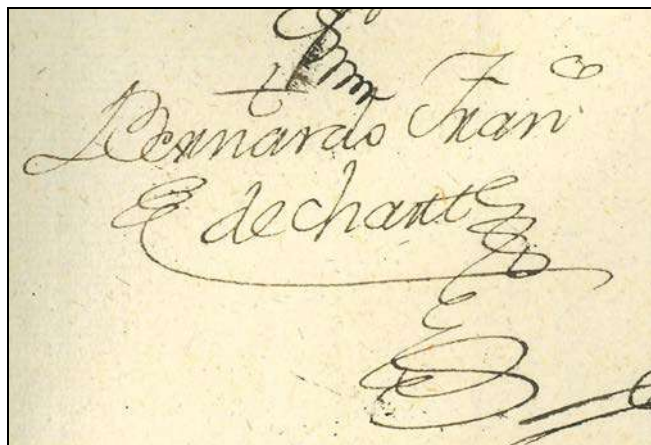 Bernardo Fran^co
de chart